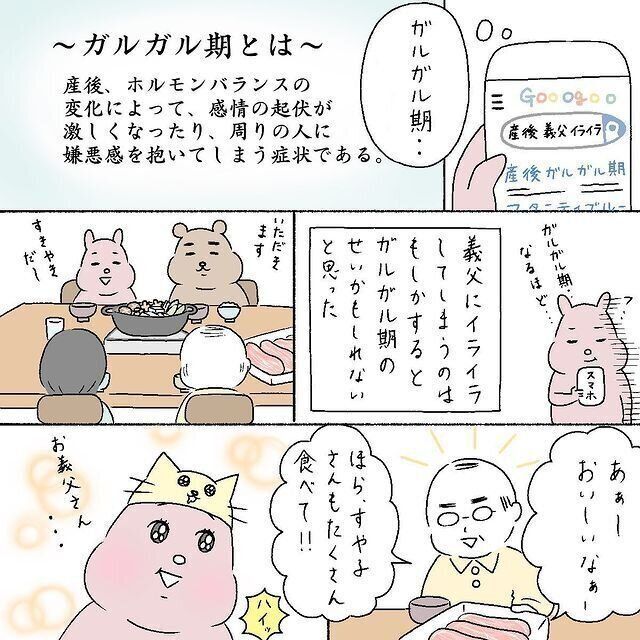 ～ガルガル期とは～
産後、ホルモンバランスの
変化によって、感情の起伏が
激しくなったり、周りの人に
嫌悪感を抱いてしまう症状である。
ガルガル期‥
Gooogoo
産後 義父 イライラ
産後ガルガル期
マタニティブルー
ガルガル期
なるほど…
スマホ
義父にイライラ
してしまうのは
もしかすると
ガルガル期の
せいかもしれない
と思った
いただき
ます
すきやき
だし
あぁー
おいしいなぁー
ほら、すや子
さんもたくさん
食べて!!
お義父さん
・・・
ハイッ